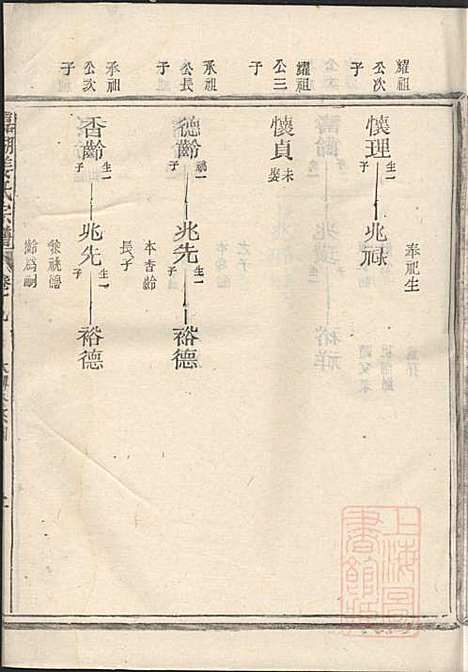 耀祖公次子
懷理 生一子 兆祿
奉祀生
耀祖公三子
懷貞 未娶
承祖公長子
德齡 祧一子 兆先 生一子 裕德
本香齡長子
承祖公次子
香齡 生一子 兆先 生一子 裕德
兼祧德齡為嗣
姜氏宗譜
上海圖書館藏